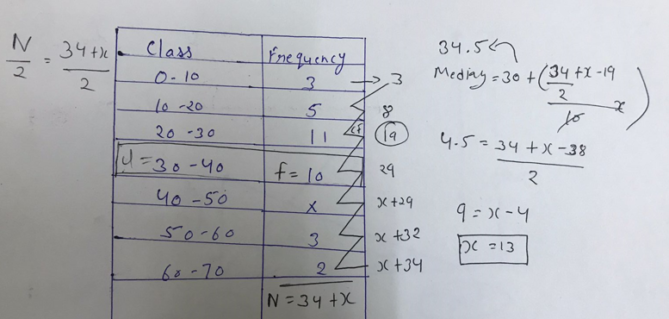 N/2 = 34+x/2
Class Frequency
0-10 3 → 3
10-20 5 8
20-30 11 cf 19
l = 30-40 f = 10 29
40-50 x x+29
50-60 3 x+32
60-70 2 x+34
N = 34+x
34.5
Median = 30 + (34+x/2 - 19 / 10 x )
4.5 = 34+x-38/2
9 = x-4
x = 13